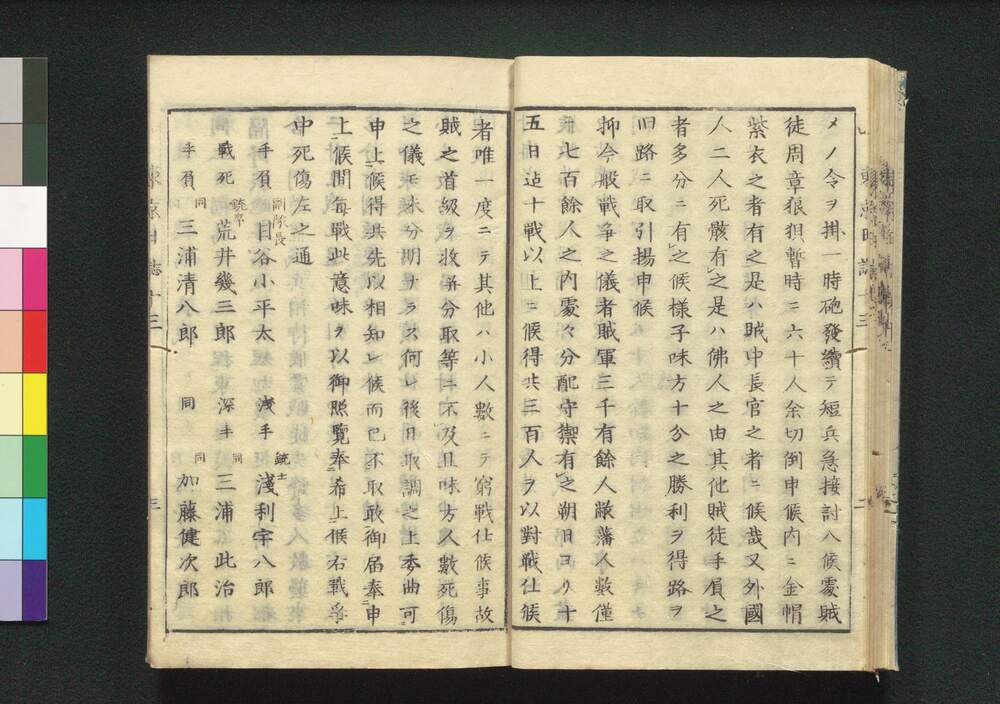 メノ令ヲ掛一時砲發續テ短兵急接討入候處賊
徒周章狼狽暫時ニ六十人余切倒申候内ニ金帽
紫衣之者有之是ハ賊中長官之者ニ候哉又外國
人二人死骸有之是ハ佛人之由其他賊徒手負之
者多分ニ有之候樣子味方十分之勝利ヲ得路ヲ
旧路ニ取引揚申候
抑今般戰爭之儀者賊軍三千有餘人敵藩人數僅
七百餘人之内處々分配守禦有之朔日ヨリ十
五日迠十戰以上ニ候得共三百人ヲ以對戰仕候
者唯一度ニテ其他ハ小人數ニテ窮戰仕候事故
賊之首級ヲ收并分取等ニ不及且味方人數死傷
之儀モ未分明ナラス何レ後日取調之上委曲可
申上候得共先以相知レ候而已不取敢御届奉申
上候間每戰此意味ヲ以御照覽奉希上候右戰爭
中死傷左之通
手負 副隊長 目谷小平太 淺手 銃士 淺利宇八郎
戰死 銃卒 荒井幾三郎 深手 同 三浦此治
手負 同 三浦清八郎 同 同 加藤健次郎
三